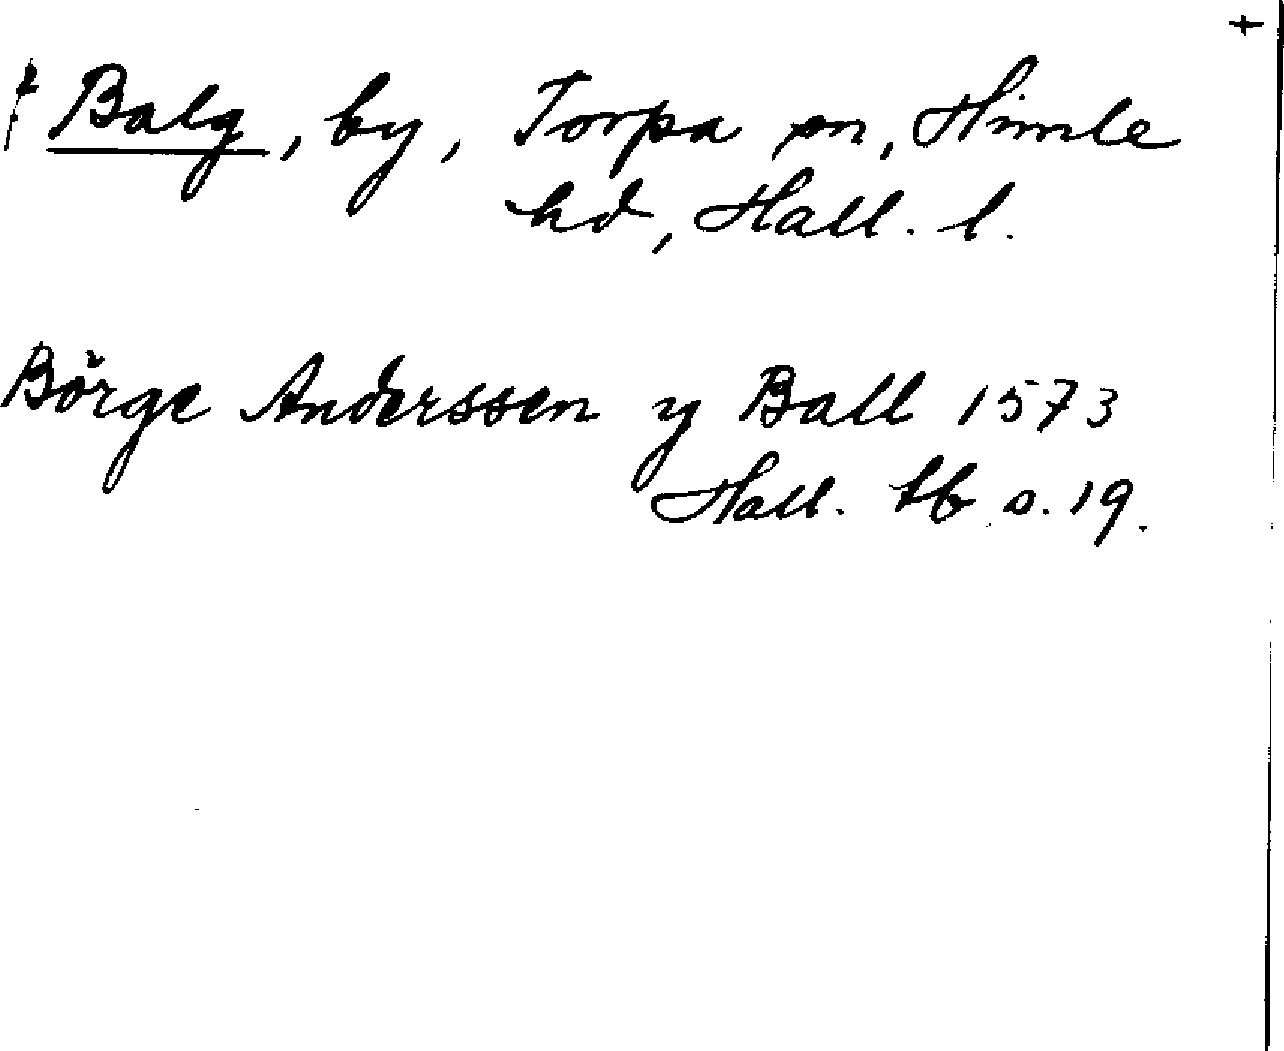 +
† Balg, by, Torpa sn, Himle
hd, Hall. l.
Börge Anderssen y Ball 1573
Hall. tb s. 19.